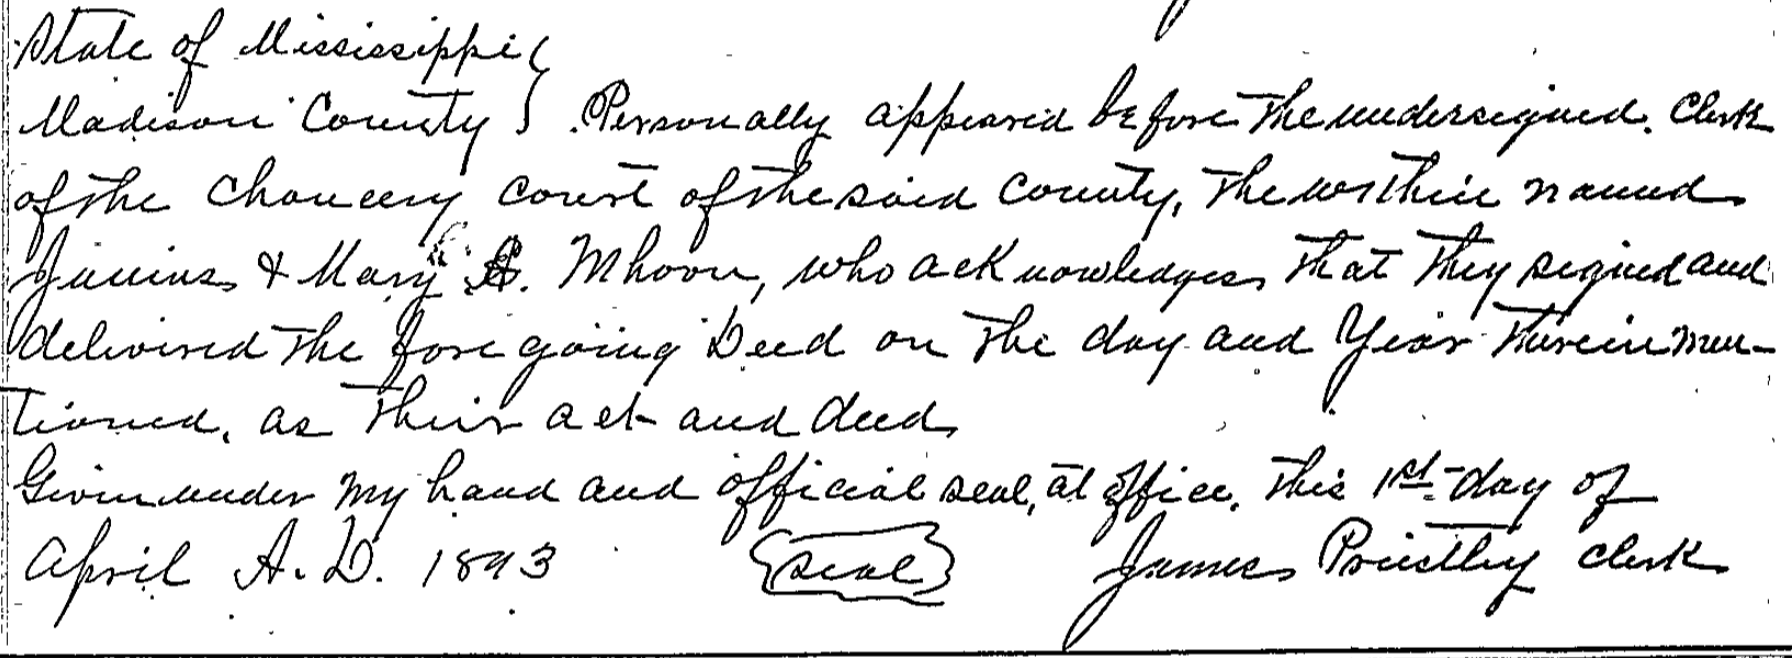 State of Mississippi
Madison County Personally appeared before the undersigned. Clerk
of the Chancery court of the said County, the within named
Junius & Mary Mhoon, who acknowledges that they signed and
delivered the foregoing Deed on the day and Year therein men-
tioned, as their act and deed
Given under my hand and official seal, at office. this 1st day of
April A.D. 1893 {Seal} James Priestley clerk